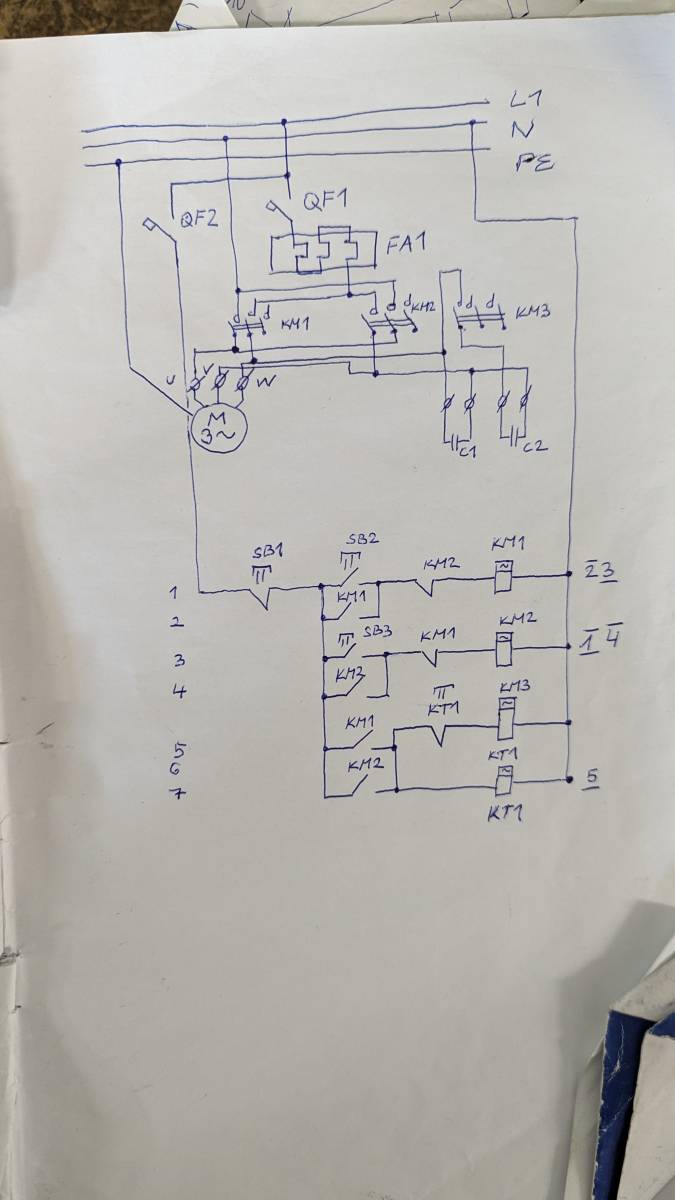 L1
N
PE
QF1
QF2
FA1
KM1
KM2
KM3
U
V
W
M
3~
C1
C2
SB1
SB2
KM2
KM1
1
KM1
2̅ 3
2
SB3
KM1
KM2
1 4̅
3
KM2
4
KT1
KM3
KM1
5
6
KM2
KT1
5
7
KT1